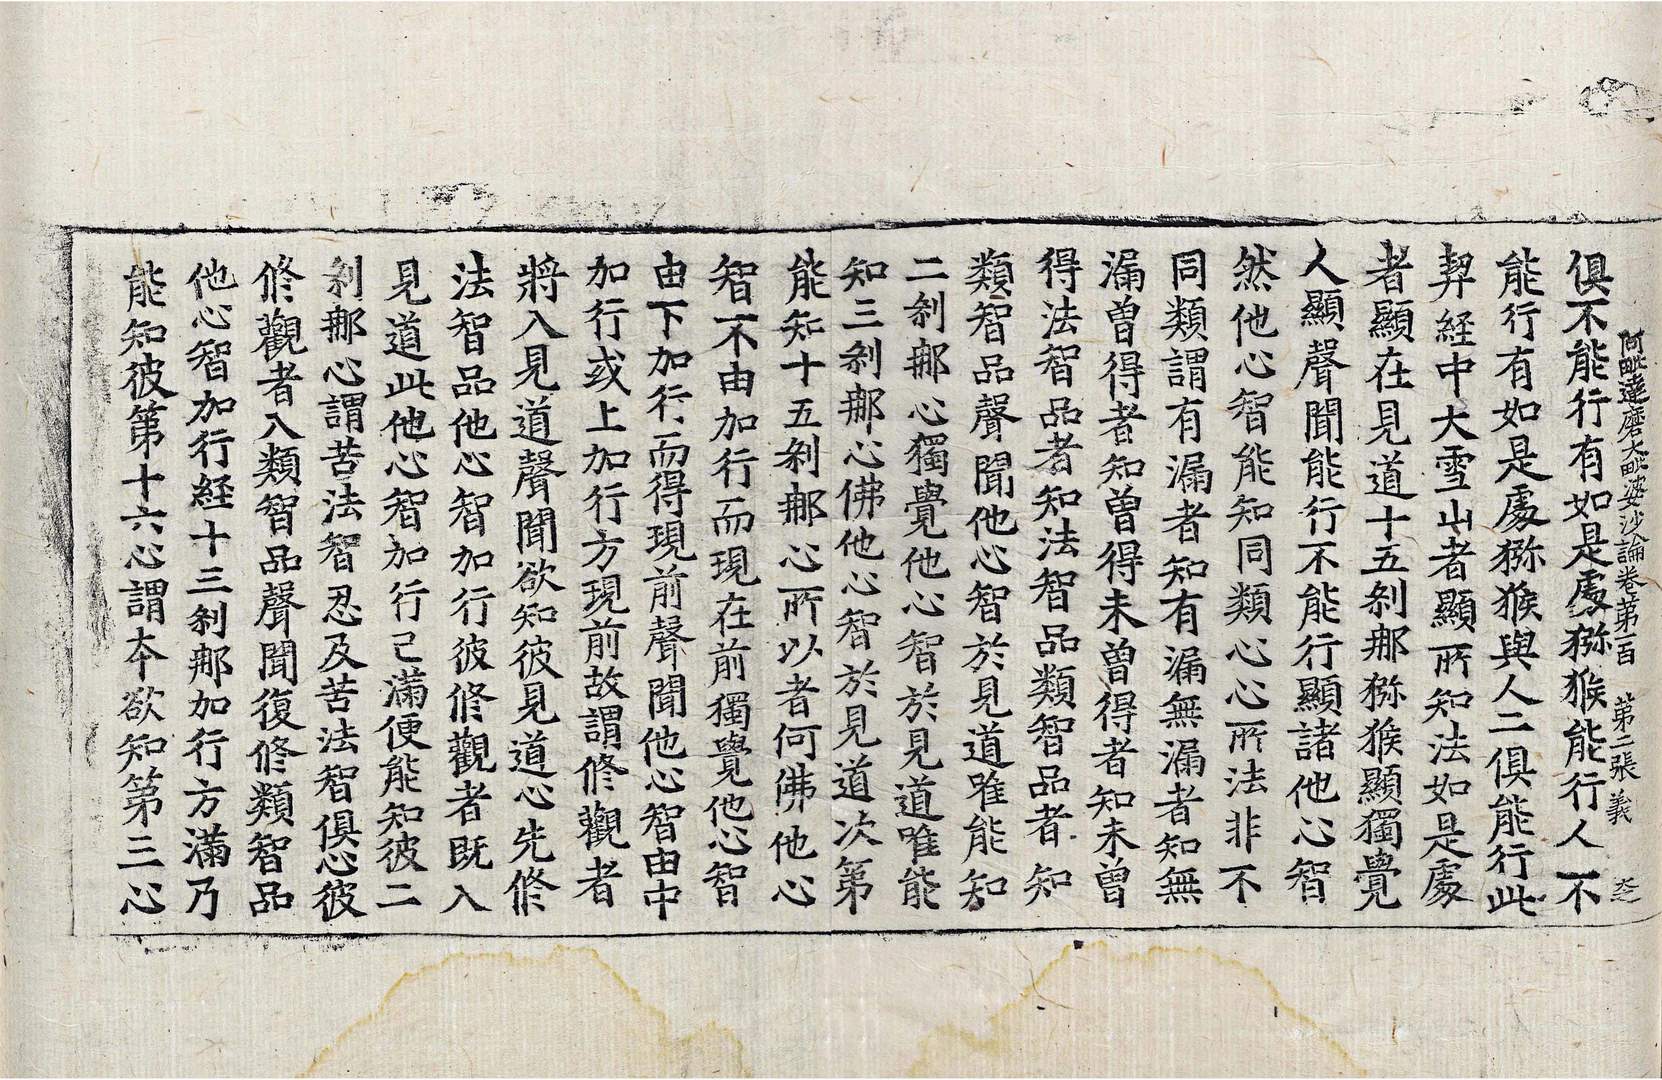 阿毗達磨大毗婆沙論卷第一百 第二張 義
俱不能行有如是處獼猴能行人不
能行有如是處獼猴與人二俱能行此
契経中大雪山者顯所知法如是處
者顯在見道十五刹那獼猴顯獨覺
人顯聲聞能行不能行顯諸他心智
然他心智能知同類心心所法非不
同類謂有漏者知有漏無漏者知無
漏曾得者知曾得未曾得者知未曾
得法智品者知法智品類智品者知
類智品聲聞他心智於見道唯能知
二刹那心獨覺他心智於見道唯能
知三刹那心佛他心智於見道次第
能知十五刹那心所以者何佛他心
智不由加行而現在前獨覺他心智
由下加行而得現前聲聞他心智由中
加行或上加行方現前故謂修觀者
將入見道聲聞欲知彼見道心先修
法智品他心智加行彼修觀者既入
見道此他心智加行已滿便能知彼二
刹那心謂苦法智忍及苦法智俱心彼
修觀者入類智品聲聞復修類智品
他心智加行経十三刹那加行方滿乃
能知彼第十六心謂本欲知第三心